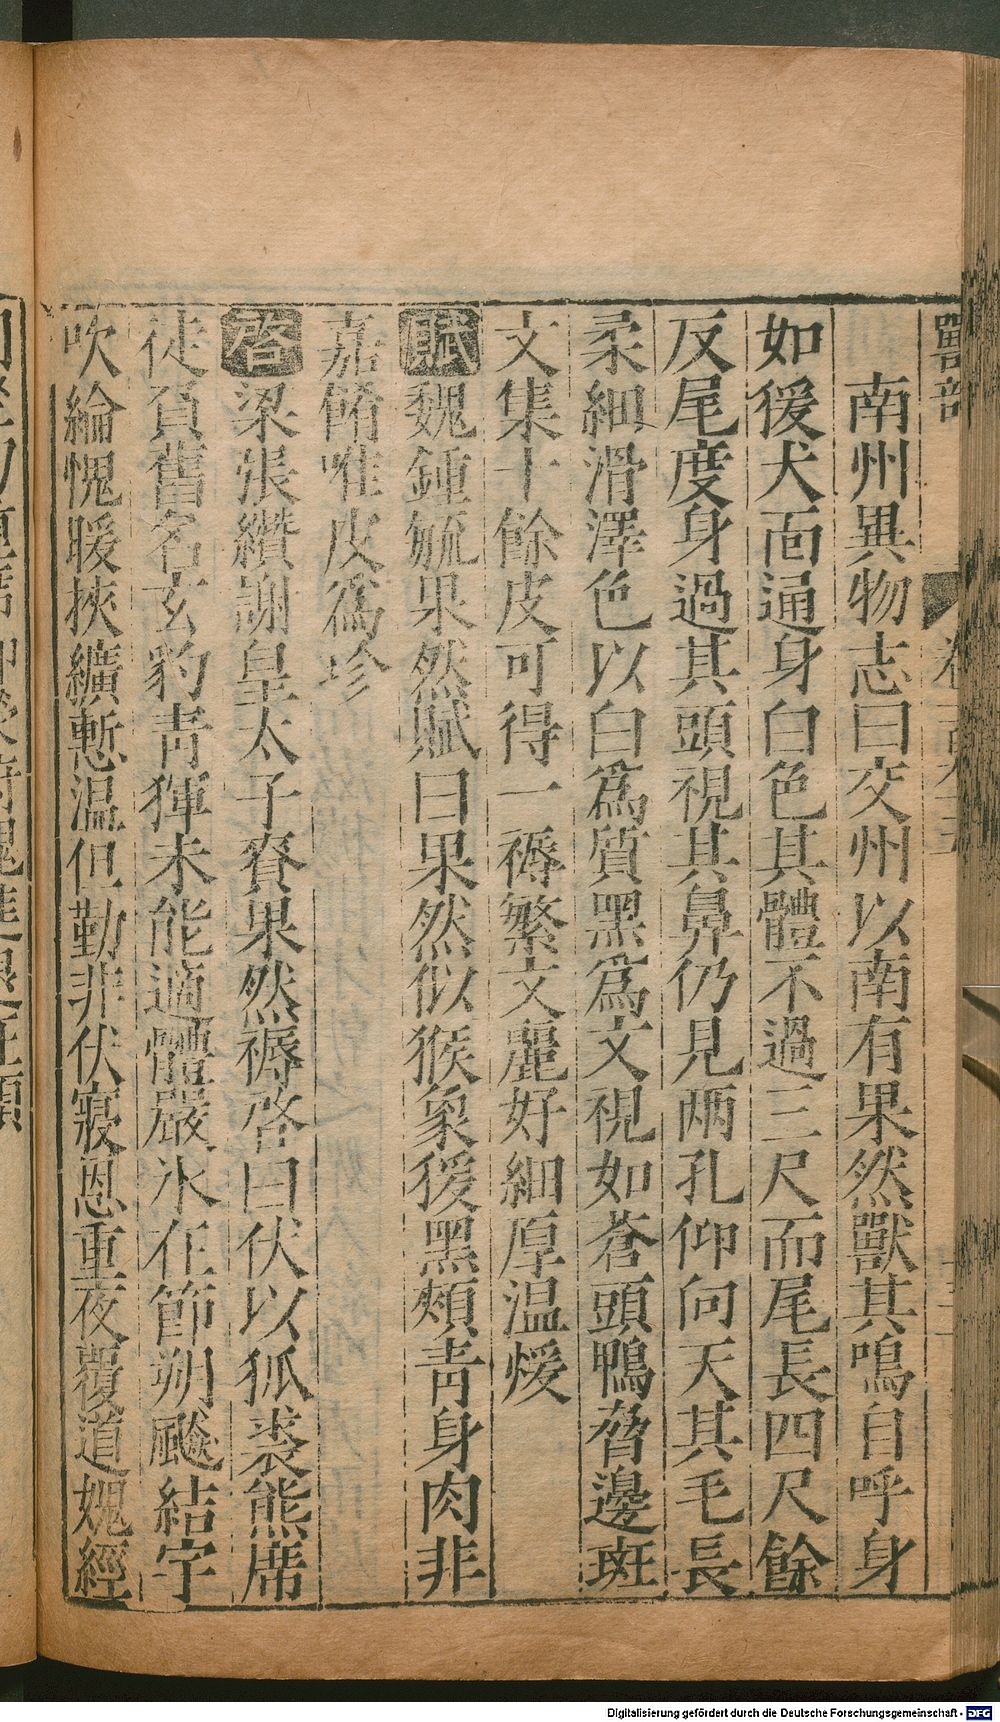 獸部
南州異物志曰交州以南有果然獸其鳴自呼身
如猨犬面通身白色其體不過三尺而尾長四尺餘
反尾度身過其頭視其鼻仍見兩孔仰向天其毛長
柔細滑澤色以白爲質黑爲文視如蒼頭鴨脅邊斑
文集十餘皮可得一褥繁文麗好細厚温煖
賦魏鍾毓果然賦曰果然似猴象猨黑頰青身肉非
嘉餚唯皮爲珍
啓梁張纘謝皇太子賚果然褥啓曰伏以狐裘熊席
徒負舊名玄豹青狸未能適體嚴氷在節朔飈結宇
吹綸愧暖挾纊慙温但勤非伏寢恩重夜覆道媿經
Digitalisierung gefördert durch die Deutsche Forschungsgemeinschaft - DFG